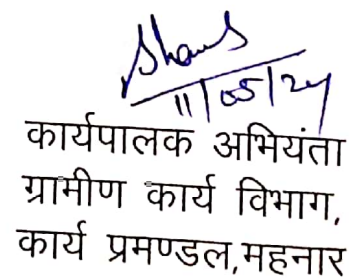 11/05/24
कार्यपालक अभियंता
ग्रामीण कार्य विभाग,
कार्य प्रमण्डल,महनार